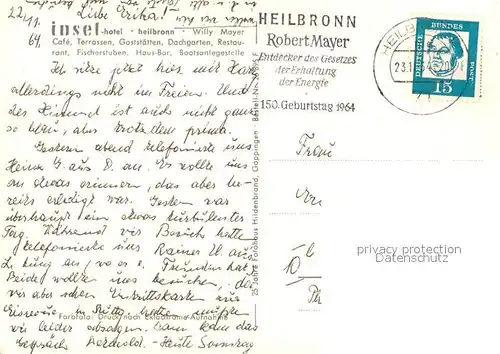 22./11. 64.
Liebe Erika!
insel-hotel · heilbronn - Willy Mayer
Café, Terrassen, Gaststätten, Dachgarten, Restau-
rant, Fischerstuben, Haus-Bar, Bootsanlegestelle
Ich sitze jetzt hier mit Karl
allerdings nicht im Freien. Und
der Himmel ist auch nicht ganz
so blau, aber trotzdem prima.
Gestern abend telefonierte uns
Heinz G. aus D. an. Er wollte uns
an etwas erinnern, das aber be-
reits erledigt war. Gestern war
überhaupt ein etwas turbulenter
Tag. Während wir Besuch hatten
telefonierte uns Rainer U. aus
bung an, wo er Freunden hat
Beide wollten uns besuchen, da
wir aber schon Eintrittskarten zur
Eisrevue in hatten mußten
wir leider absagen. Dann kam das
Gespräch Berthold. - Heute Sonntag
Farbfoto: Druck nach Ektachrome-Aufnahme
25 Jahre Fotohaus Hildenbrand, Göppingen · Bestell-Nr.
HEILBRONN
Robert Mayer
Entdecker des Gesetzes
der Erhaltung
der Energie
150. Geburtstag 1964
HEILBR
23.11
DEUTSCHE BUNDESPOST
15
Frau
10
privacy protection
Datenschutz